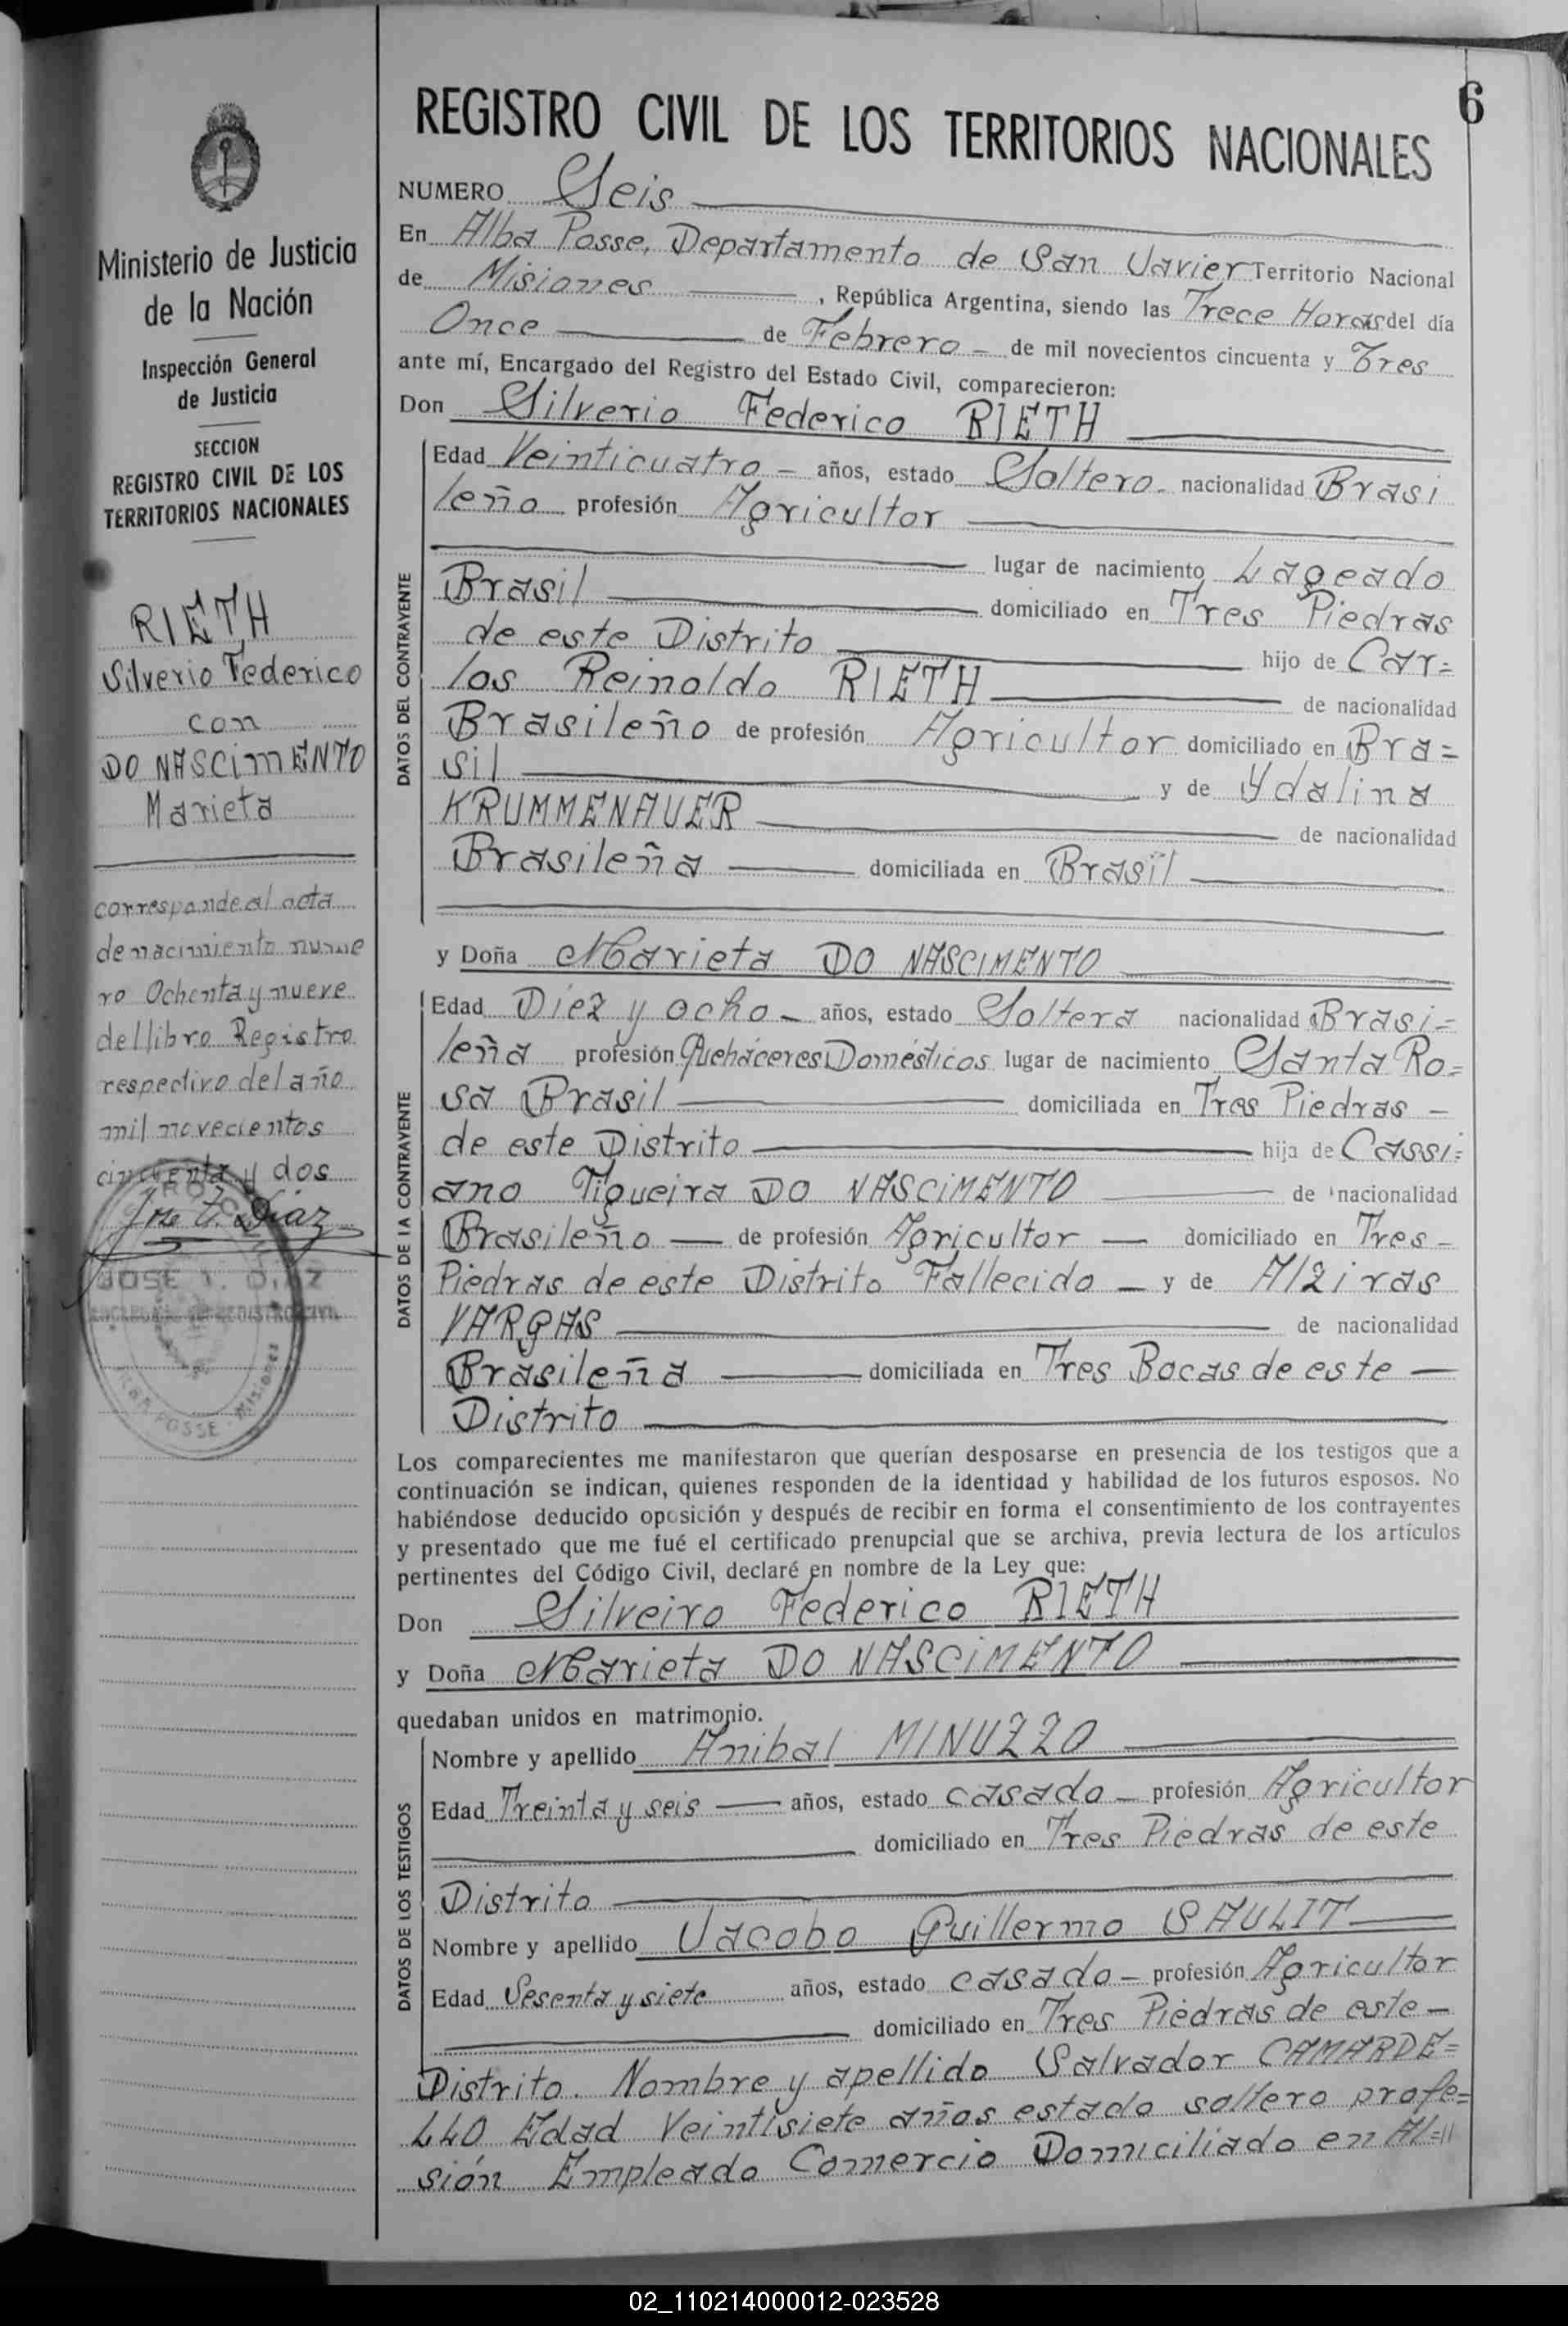 6
REGISTRO CIVIL DE LOS TERRITORIOS NACIONALES
Ministerio de Justicia
de la Nación
Inspección General
de Justicia
SECCION
REGISTRO CIVIL DE LOS
TERRITORIOS NACIONALES
RIETH
Silverio Federico
con
DO NASCIMENTO
Marieta
corresponde al acta
de nacimiento nume
ro Ochenta y nueve
del libro Registro
respectivo del año
mil novecientos
cincuenta y dos
JOSE DIAZ
ENCARGADO REGISTRO CIVIL
ALBA POSSE - Misiones
NUMERO Seis
En Alba Posse, Departamento de San Javier Territorio Nacional
de Misiones , República Argentina, siendo las Trece Horas del día
Once de Febrero - de mil novecientos cincuenta y Tres
ante mí, Encargado del Registro del Estado Civil, comparecieron:
Don Silverio Federico RIETH
DATOS DEL CONTRAYENTE
Edad Veinticuatro - años, estado Soltero - nacionalidad Brasi
leño profesión Agricultor
lugar de nacimiento Lageado
Brasil domiciliado en Tres Piedras
de este Distrito hijo de Car=
los Reinoldo RIETH de nacionalidad
Brasileño de profesión Agricultor domiciliado en Bra=
sil y de Ydalina
KRUMMENAUER de nacionalidad
Brasileña domiciliada en Brasil
y Doña Marieta DO NASCIMENTO
DATOS DE LA CONTRAYENTE
Edad Diez y ocho - años, estado Soltera nacionalidad Brasi=
leña profesión Quehaceres Domésticos lugar de nacimiento Santa Ro=
sa Brasil domiciliada en Tres Piedras -
de este Distrito hija de Cassi=
ano Figueira DO NASCIMENTO de nacionalidad
Brasileño - de profesión Agricultor - domiciliado en Tres -
Piedras de este Distrito Fallecido - y de Alziras
VARGAS de nacionalidad
Brasileña domiciliada en Tres Bocas de este -
Distrito
Los comparecientes me manifestaron que querían desposarse en presencia de los testigos que a
continuación se indican, quienes responden de la identidad y habilidad de los futuros esposos. No
habiéndose deducido oposición y después de recibir en forma el consentimiento de los contrayentes
y presentado que me fué el certificado prenupcial que se archiva, previa lectura de los artículos
pertinentes del Código Civil, declaré en nombre de la Ley que:
Don Silveiro Federico RIETH
y Doña Marieta DO NASCIMENTO
quedaban unidos en matrimonio.
DATOS DE LOS TESTIGOS
Nombre y apellido Anibal MINUZZO
Edad Treinta y seis - años, estado casado - profesión Agricultor
domiciliado en Tres Piedras de este
Distrito
Nombre y apellido Jacobo Guillermo SAULIT
Edad Sesenta y siete años, estado casado - profesión Agricultor
domiciliado en Tres Piedras de este -
Distrito. Nombre y apellido Salvador CAMARDE=
LLO Edad Veintisiete años estado soltero profe=
sión Empleado Comercio Domiciliado en Al=//
02_110214000012-023528